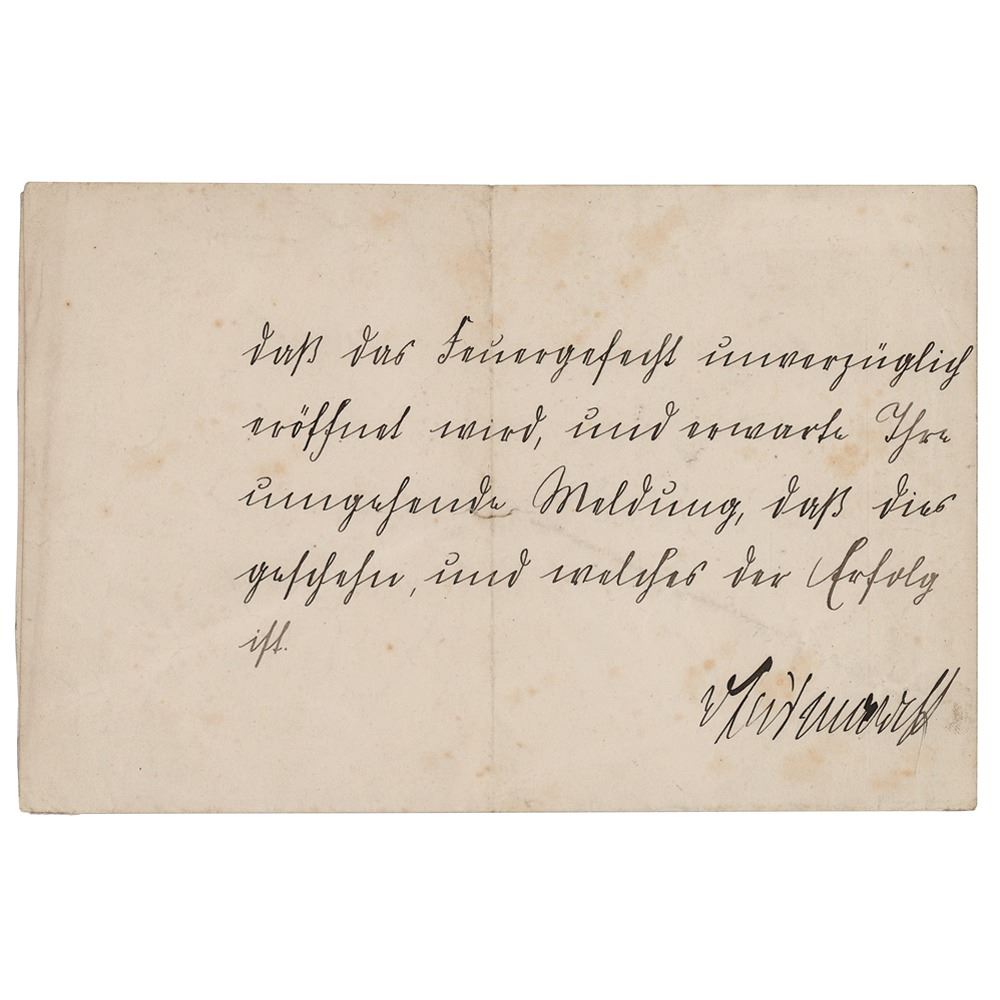 daß das Feuergefecht unverzüglich
eröffnet wird, und erwarte Ihre
umgehende Meldung, daß dies
geschehen, und welches der Erfolg
ist.
vBismarck